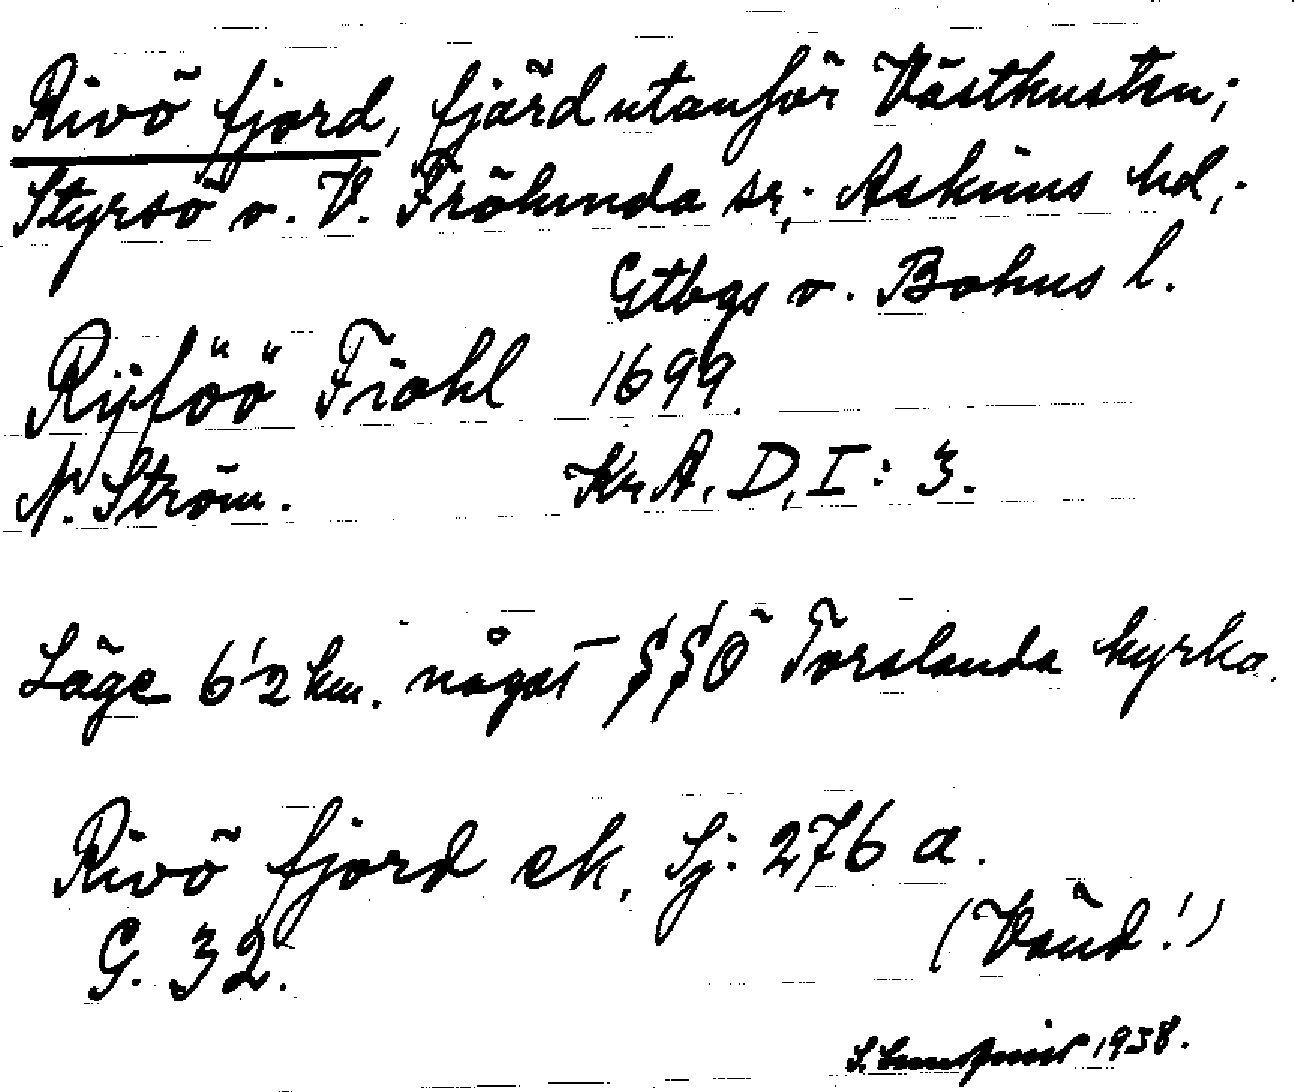 Rivö fjord, fjärd utanför Västkusten;
Styrsö o. V. Frölunda sr; Askims hd;
Gtbgs o. Bohus l.
Rijföö Fiohl 1699.
N. Ström. Kr.A. D, I: 3.
Läge 6,2 km. något SSÖ Torslanda kyrka.
Rivö fjord ek. Sj: 276 a.
G. 32.
(Vänd!)
1938.